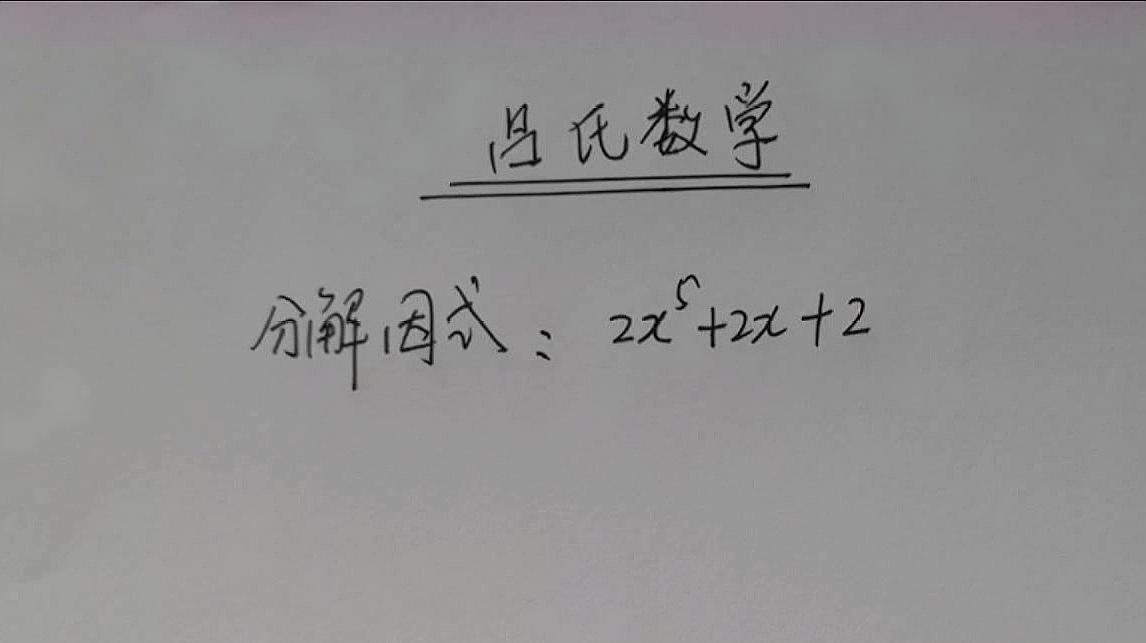 吕氏数学
分解因式：2x⁵+2x+2